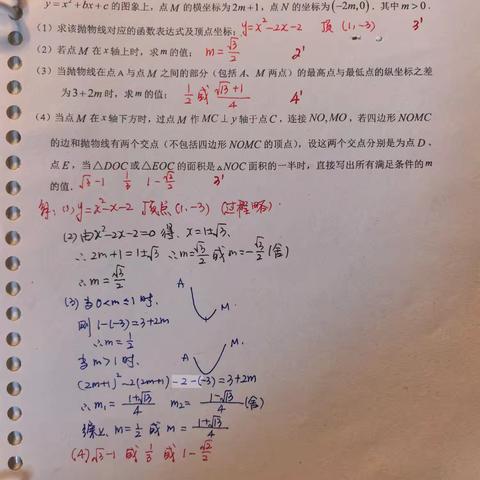 y=x²+bx+c 的图象上，点 M 的横坐标为 2m+1，点 N 的坐标为(-2m,0)．其中 m>0．
(1) 求该抛物线对应的函数表达式及顶点坐标；y=x²-2x-2 顶(1,-3) 3'
(2) 若点 M 在 x 轴上时，求 m 的值；m=√3/2 2'
(3) 当抛物线在点 A 与点 M 之间的部分（包括 A、M 两点）的最高点与最低点的纵坐标之差
为 3+2m 时，求 m 的值；1/2 或 (√13+1)/4 4'
(4) 当点 M 在 x 轴下方时，过点 M 作 MC⊥y 轴于点 C，连接 NO,MO，若四边形 NOMC
的边和抛物线有两个交点（不包括四边形 NOMC 的顶点），设这两个交点分别是为点 D、
点 E，当△DOC 或△EOC 的面积是△NOC 面积的一半时，直接写出所有满足条件的 m
的值．√3-1 1/3 1-√2/2 3'
解：(1) y=x²-x-2 顶点(1,-3) (过程略)．
(2) 由x²-2x-2=0 得．x=1±√3．
∴ 2m+1=1±√3 ∴m=√3/2 或 m=-√3/2(舍)
∴m=√3/2
(3) 当0<m≤1时． A M
则 1-(-3)=3+2m
∴m=1/2
当m>1时． A M．
(2m+1)²-2(2m+1)-2-(-3)=3+2m
∴m₁=(1+√13)/4 m₂=(1-√13)/4(舍)
综上 m=1/2 或 m=(1+√13)/4
(4) √3-1 或 1/3 或 1-√2/2